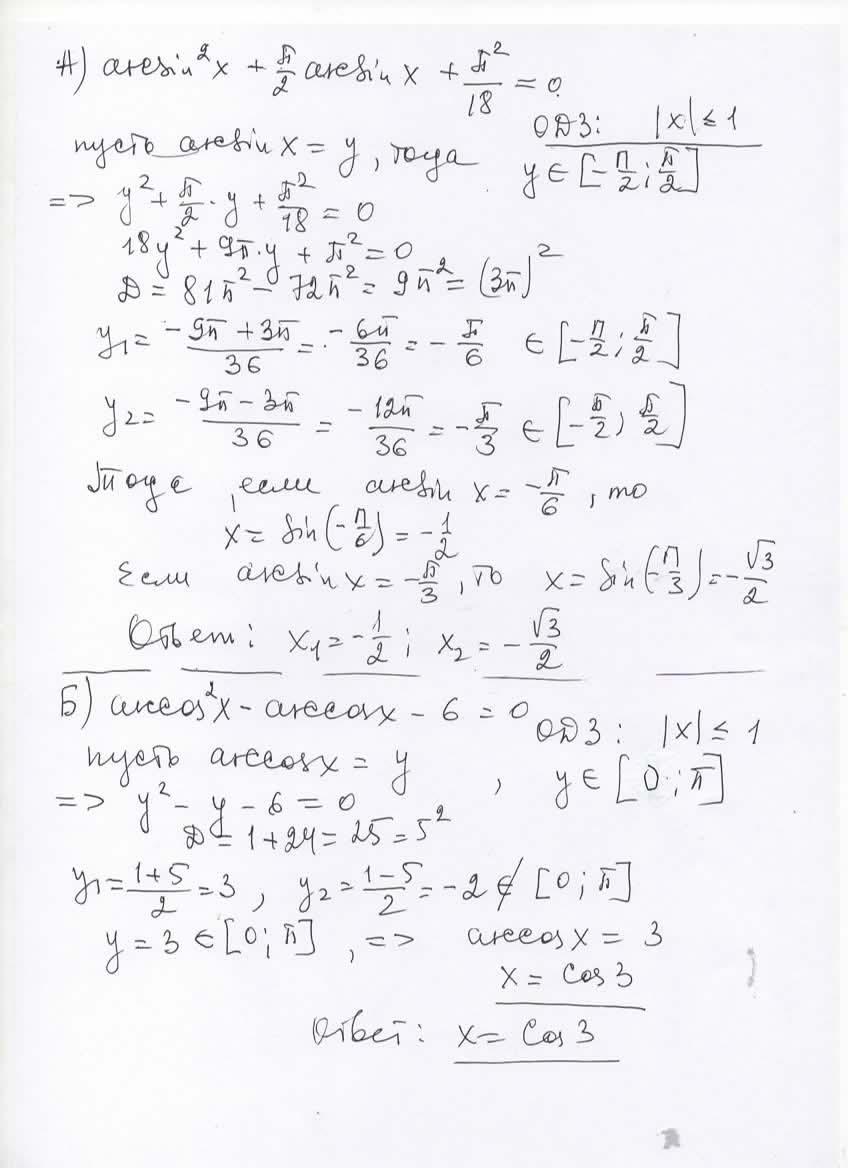 А) arcsin²x + π/2 arcsin x + π²/18 = 0
ОДЗ: |x| ≤ 1
пусть arcsin x = y, тогда y ∈ [-π/2; π/2]
=> y² + π/2 · y + π²/18 = 0
18y² + 9π·y + π² = 0
D = 81π² - 72π² = 9π² = (3π)²
y₁ = (-9π + 3π)/36 = -6π/36 = -π/6 ∈ [-π/2; π/2]
y₂ = (-9π - 3π)/36 = -12π/36 = -π/3 ∈ [-π/2; π/2]
Тогда, если arcsin x = -π/6, то
x = sin(-π/6) = -1/2
Если arcsin x = -π/3, то x = sin(-π/3) = -√3/2
Ответ: x₁ = -1/2; x₂ = -√3/2
Б) arccos²x - arccosx - 6 = 0
ОДЗ: |x| ≤ 1
пусть arccosx = y, y ∈ [0; π]
=> y² - y - 6 = 0
D = 1 + 24 = 25 = 5²
y₁ = (1+5)/2 = 3, y₂ = (1-5)/2 = -2 ∉ [0; π]
y = 3 ∈ [0; π], => arccos x = 3
x = cos 3
Ответ: x = cos 3